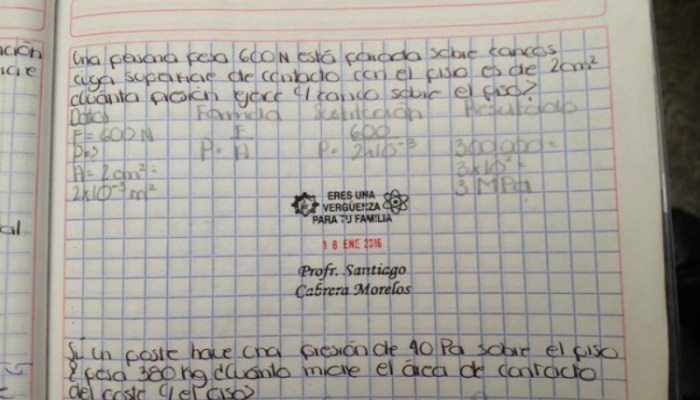 ación
icie
Una persona pesa 600N está parada sobre zancos
cuya superficie de contacto con el piso es de 2cm²
¿Cuánta presión ejerce c/zanco sobre el piso?
Datos Formula Sustitución Resultado
F = 600 N F 600 300000 =
P = ? P = A P = 2x10⁻³
A = 2cm² = 3 MPa
2x10⁻³ m²
al
ERES UNA
VERGÜENZA
PARA TU FAMILIA
18 ENE 2016
Profr. Santiago
Cabrera Morelos
Si un poste hace una presión de 40 Pa sobre el piso
y pesa 380 kg ¿Cuánto mide el área de contacto
del poste c/ el piso?